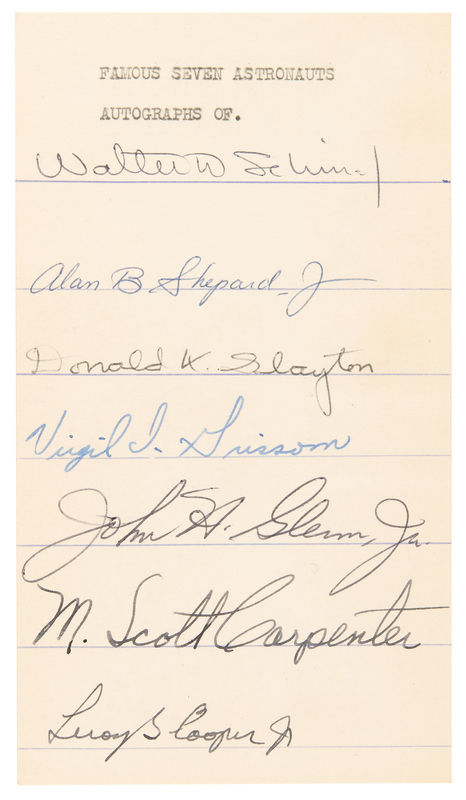 FAMOUS SEVEN ASTRONAUTS
AUTOGRAPHS OF.
Walter M Schirra J
Alan B Shepard Jr
Donald K. Slayton
Virgil I. Grissom
John H. Glenn, Jr.
M. Scott Carpenter
Leroy G Cooper Jr